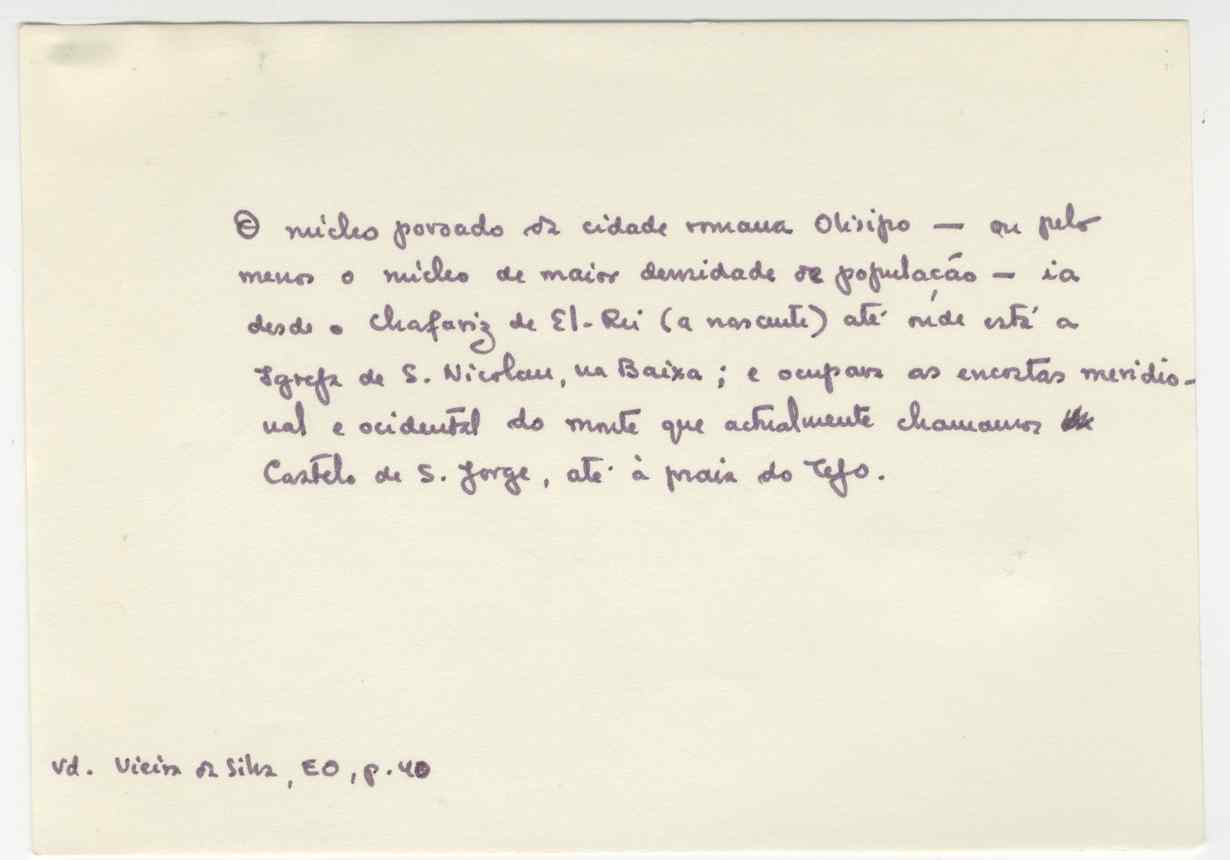 O núcleo povoado da cidade romana Olisipo — ou pelo
menos o núcleo de maior densidade de população — ia
desde o Chafariz de El-Rei (a nascente) até ónde está a
Igreja de S. Nicolau, na Baixa; e ocupava as encostas meridio-
nal e ocidental do monte que actualmente chamamos
Castelo de S. Jorge, até à praia do Tejo.
Vd. Vieira da Silva, EO, p. 40